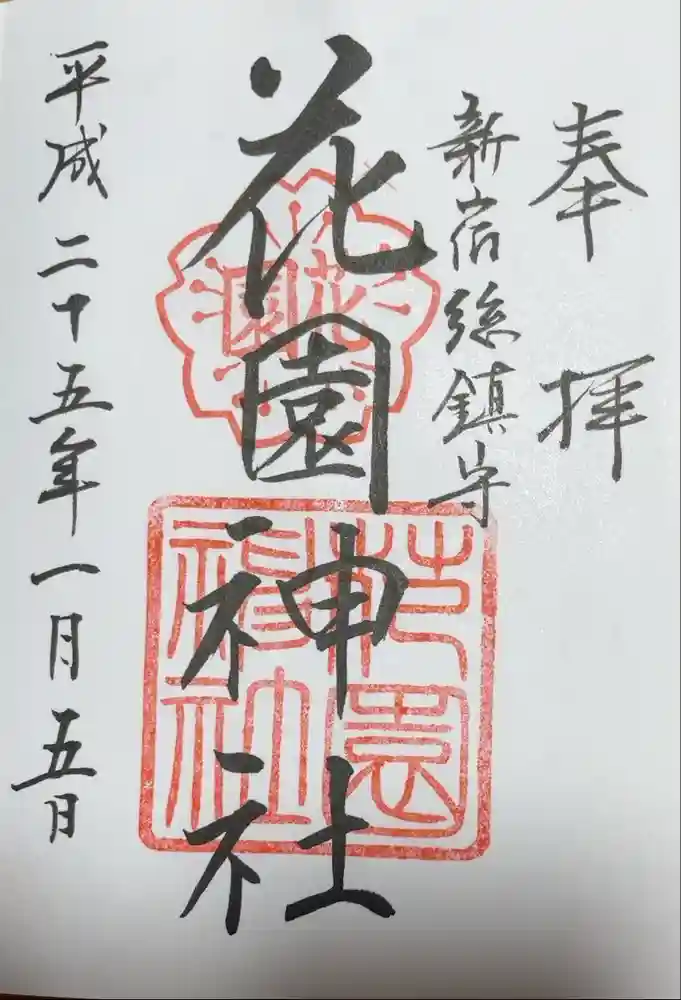 奉拝
新宿総鎮守
花園神社
花園
花園神社
平成二十五年一月五日